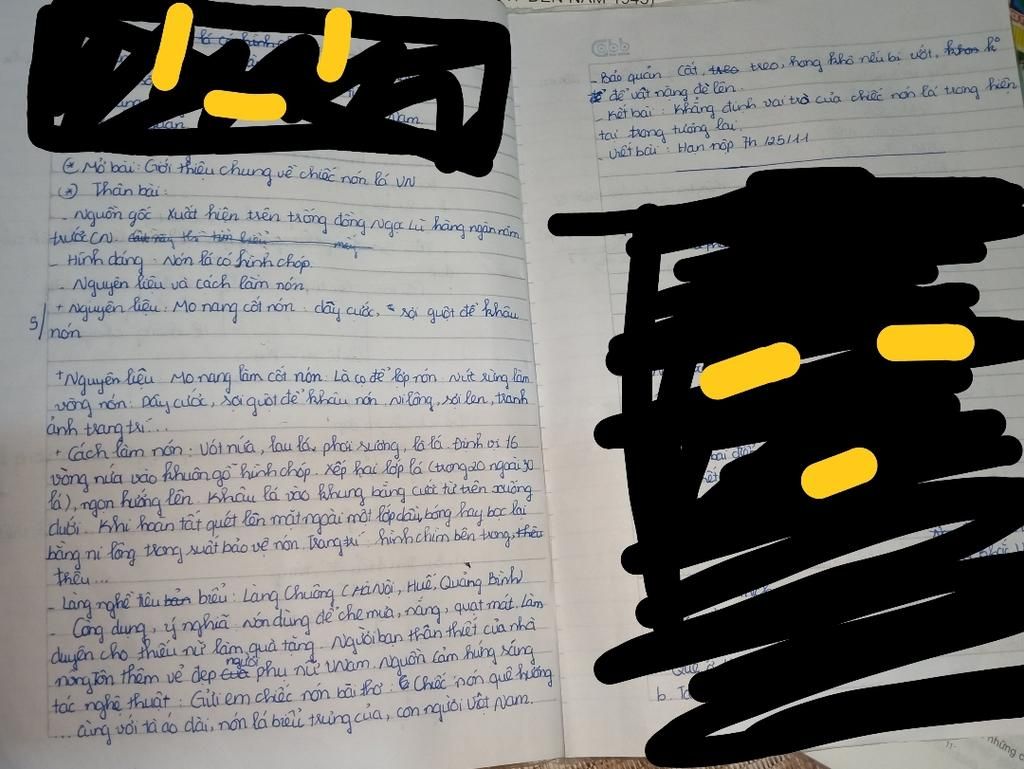 ĐẾN NĂM 1945)
(*) Mở bài: Giới thiệu chung về chiếc nón lá VN
(*) Thân bài:
- Nguồn gốc xuất hiện trên trống đồng Ngọc Lũ hàng ngàn năm
trước CN.
- Hình dáng: Nón lá có hình chóp.
- Nguyên liệu và cách làm nón
+ Nguyên liệu: Mo nang cốt nón: dây cước, sợi guột để khâu
nón
5/
+ Nguyên liệu Mo nang làm cốt nón: Lá cọ để lợp nón Nứt rừng làm
vòng nón: Dây cước, sợi guột để khâu nón Ni lông, sợi len, tranh
ảnh trang trí...
+ Cách làm nón: Vót nứa, lau lá, phơi sương, là lá. Định vị 16
vòng nứa vào khuôn gỗ hình chóp. Xếp hai lớp lá (trong 20 ngoài 30
lá), ngọn hướng lên Khâu lá vào khung bằng cước từ trên xuống
dưới. Khi hoàn tất quét lên mặt ngoài một lớp dầu, bóng hay bọc lại
bằng ni lông trong suất bảo vệ nón Trang trí hình chim bên trong, thêu
thêu...
- Làng nghề tiêu bản biểu: Làng Chuông (Hà Nội, Huế, Quảng Bình
- Công dụng, ý nghĩa Nón dùng để che mưa, nắng, quạt mát. Làm
duyên cho thiếu nữ làm quà tặng. Người bạn thân thiết của nhà
nông Tôn thêm vẻ đẹp người phụ nữ VNam. Nguồn cảm hứng sáng
tác nghệ thuật: Gửi em chiếc nón bài thơ: Chiếc nón quê hương
... cùng với tà áo dài, nón lá biểu trưng của, con người Việt Nam.
- Bảo quản: Cất, treo treo, hong khô nếu bị ướt,
để vật nặng đè lên.
- Kết bài: Khẳng định vai trò của chiếc nón lá trong hiện
tại trong tương lai.
- Viết bài: Hạn nộp 7h /25/11
b.
những c